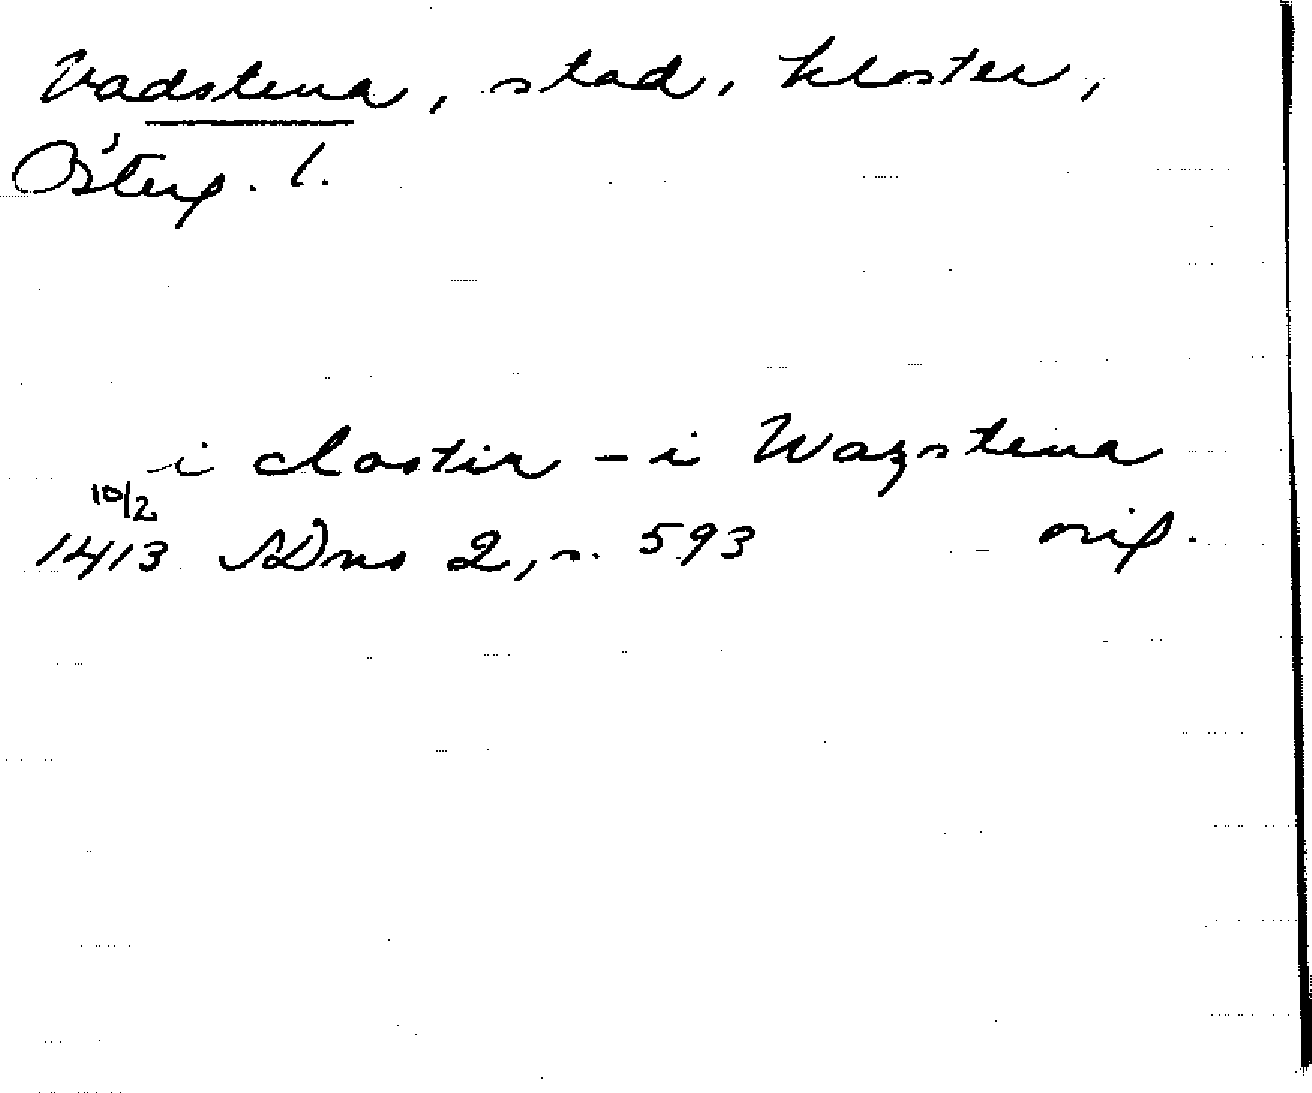 Vadstena, stad, kloster,
Österg. l.
i clostir – i Wazstena
10/2
1413 SDns 2, s. 593 orig.